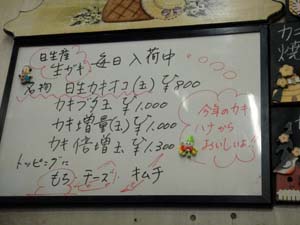 日生産
生ガキ 毎日入荷中
名物 日生カキオコ(玉) ¥800
カキブタ玉 ¥1.000
カキ増量(玉) ¥1.000
カキ倍増玉 ¥1.300
トッピングに
もち チーズ キムチ
今年のカキ
ハナから
おいしいよ!!
カキ
焼